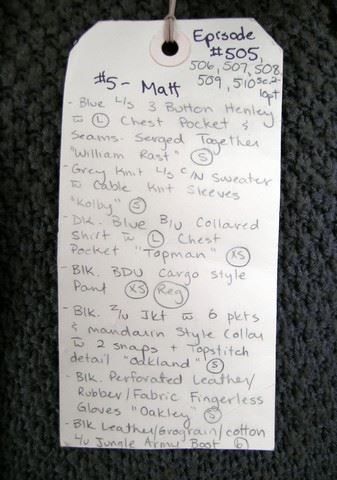 Episode
#505,
506, 507, 508,
509, 510 sc. 2-
1opt
#5 - Matt
- Blue L/s 3 Button Henley
w̄ Ⓛ Chest Pocket &
Seams. Serged Together
"William Rast" Ⓢ
- Grey Knit L/s C/N Sweater
w̄ Cable Knit Sleeves
"Kolby" Ⓢ
- Dk. Blue B/U Collared
Shirt w̄ Ⓛ Chest
Pocket "Topman" (XS)
- Blk. BDU Cargo Style
Pant (XS) (Reg)
- Blk. Z/U Jkt w̄ 6 pkts
& mandarin Style Collar
w̄ 2 snaps + Topstitch
detail "Oakland" Ⓢ
- Blk. Perforated Leather/
Rubber/Fabric Fingerless
Gloves "Oakley" Ⓢ
- Blk Leather/Grograin/cotton
L/U Jungle Army Boot ⑥